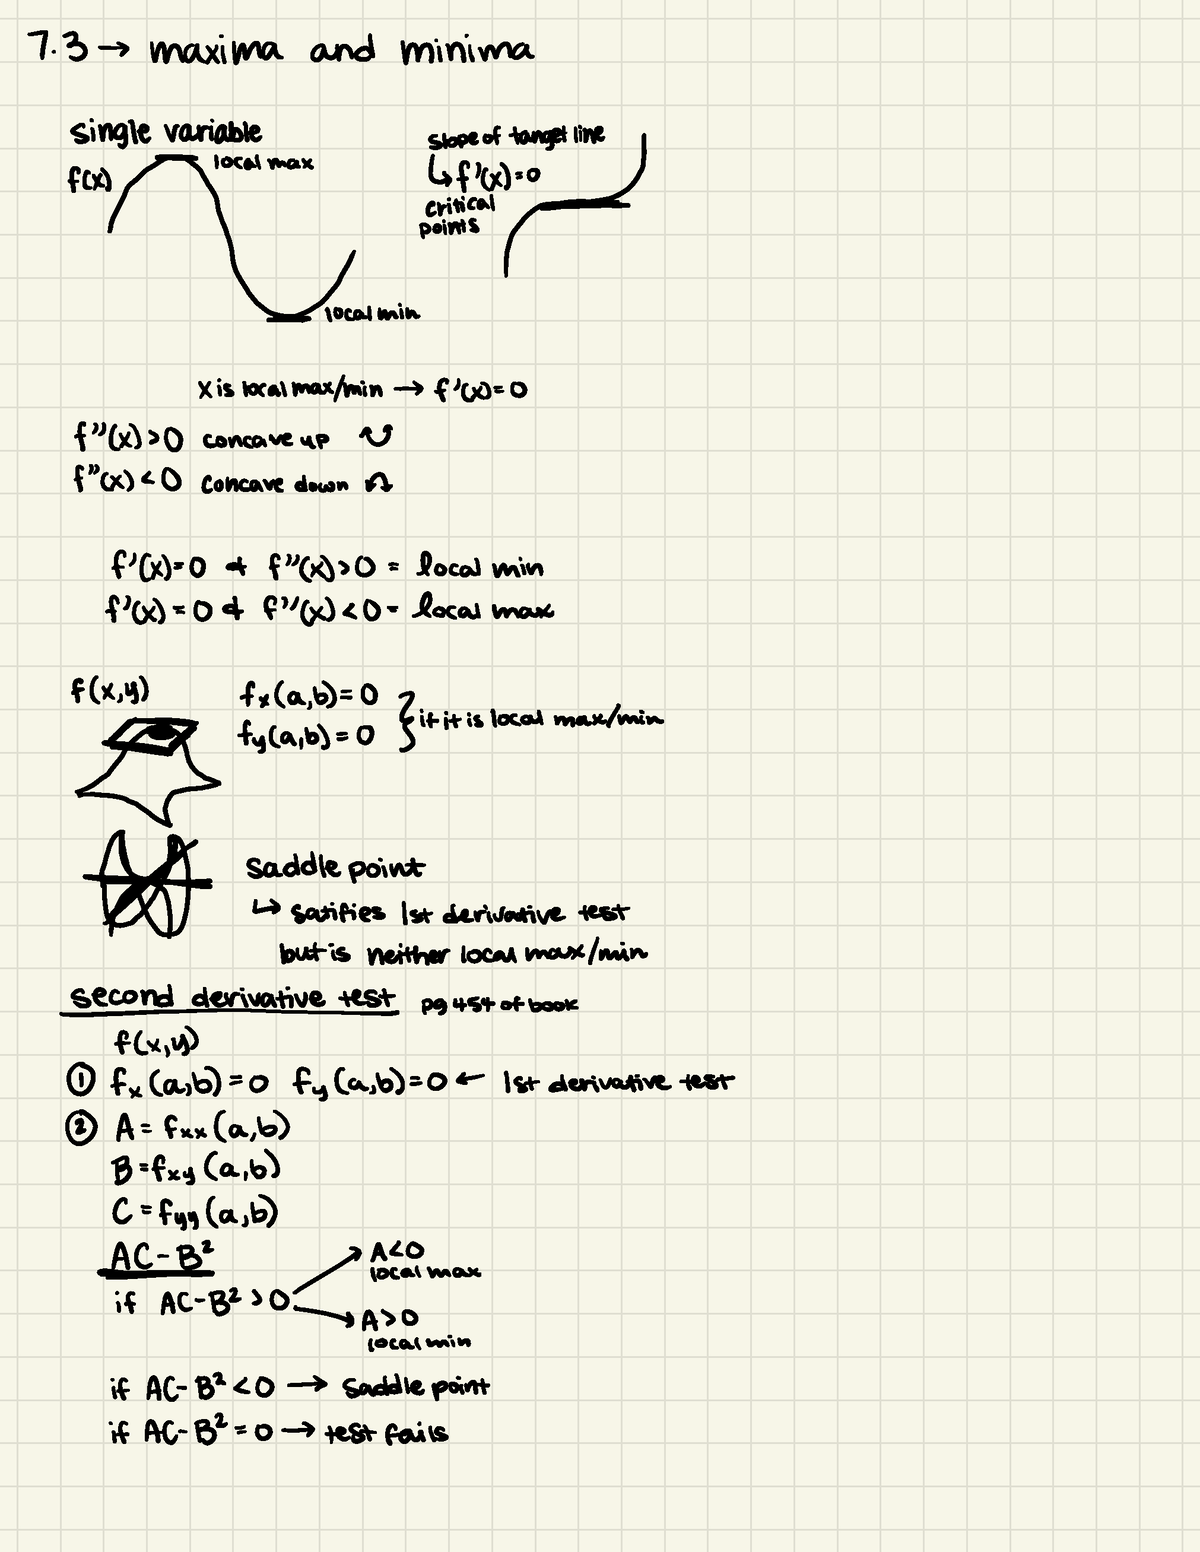 7.3 → maxima and minima
single variable
f(x)
local max
local min
slope of tanget line
↳ f'(x)=0
critical
points
x is local max/min → f'(x)=0
f''(x)>0 concave up
f''(x)<0 concave down
f'(x)=0 & f''(x)>0 = local min
f'(x)=0 & f''(x)<0 = local max
f(x,y)
fx(a,b)=0
fy(a,b)=0
} if it is local max/min
saddle point
↳ satifies 1st derivative test
but is neither local max/min
second derivative test pg 454 of book
f(x,y)
① fx(a,b)=0 fy(a,b)=0 ← 1st derivative test
② A = fxx(a,b)
B = fxy(a,b)
C = fyy(a,b)
AC-B²
if AC-B²>0
A<0
local max
A>0
local min
if AC-B²<0 → saddle point
if AC-B²=0 → test fails